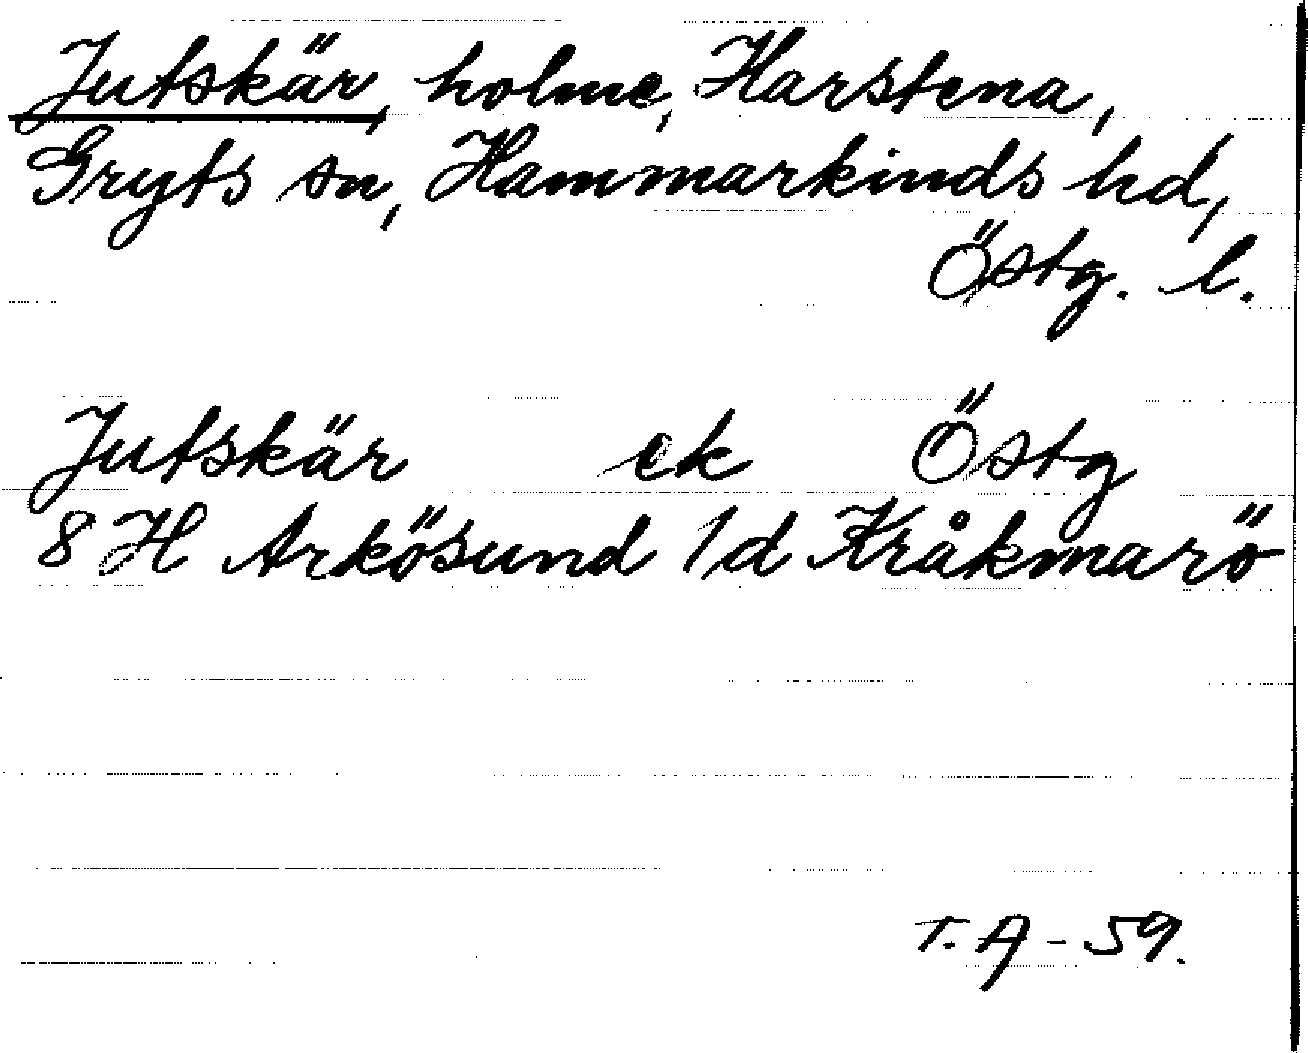 Jutskär, holme, Harstena,
Gryts sn, Hammarkinds hd,
Östg. l.
Jutskär ek Östg
8 H Arkösund 1d Kråkmarö
T. A - 59.